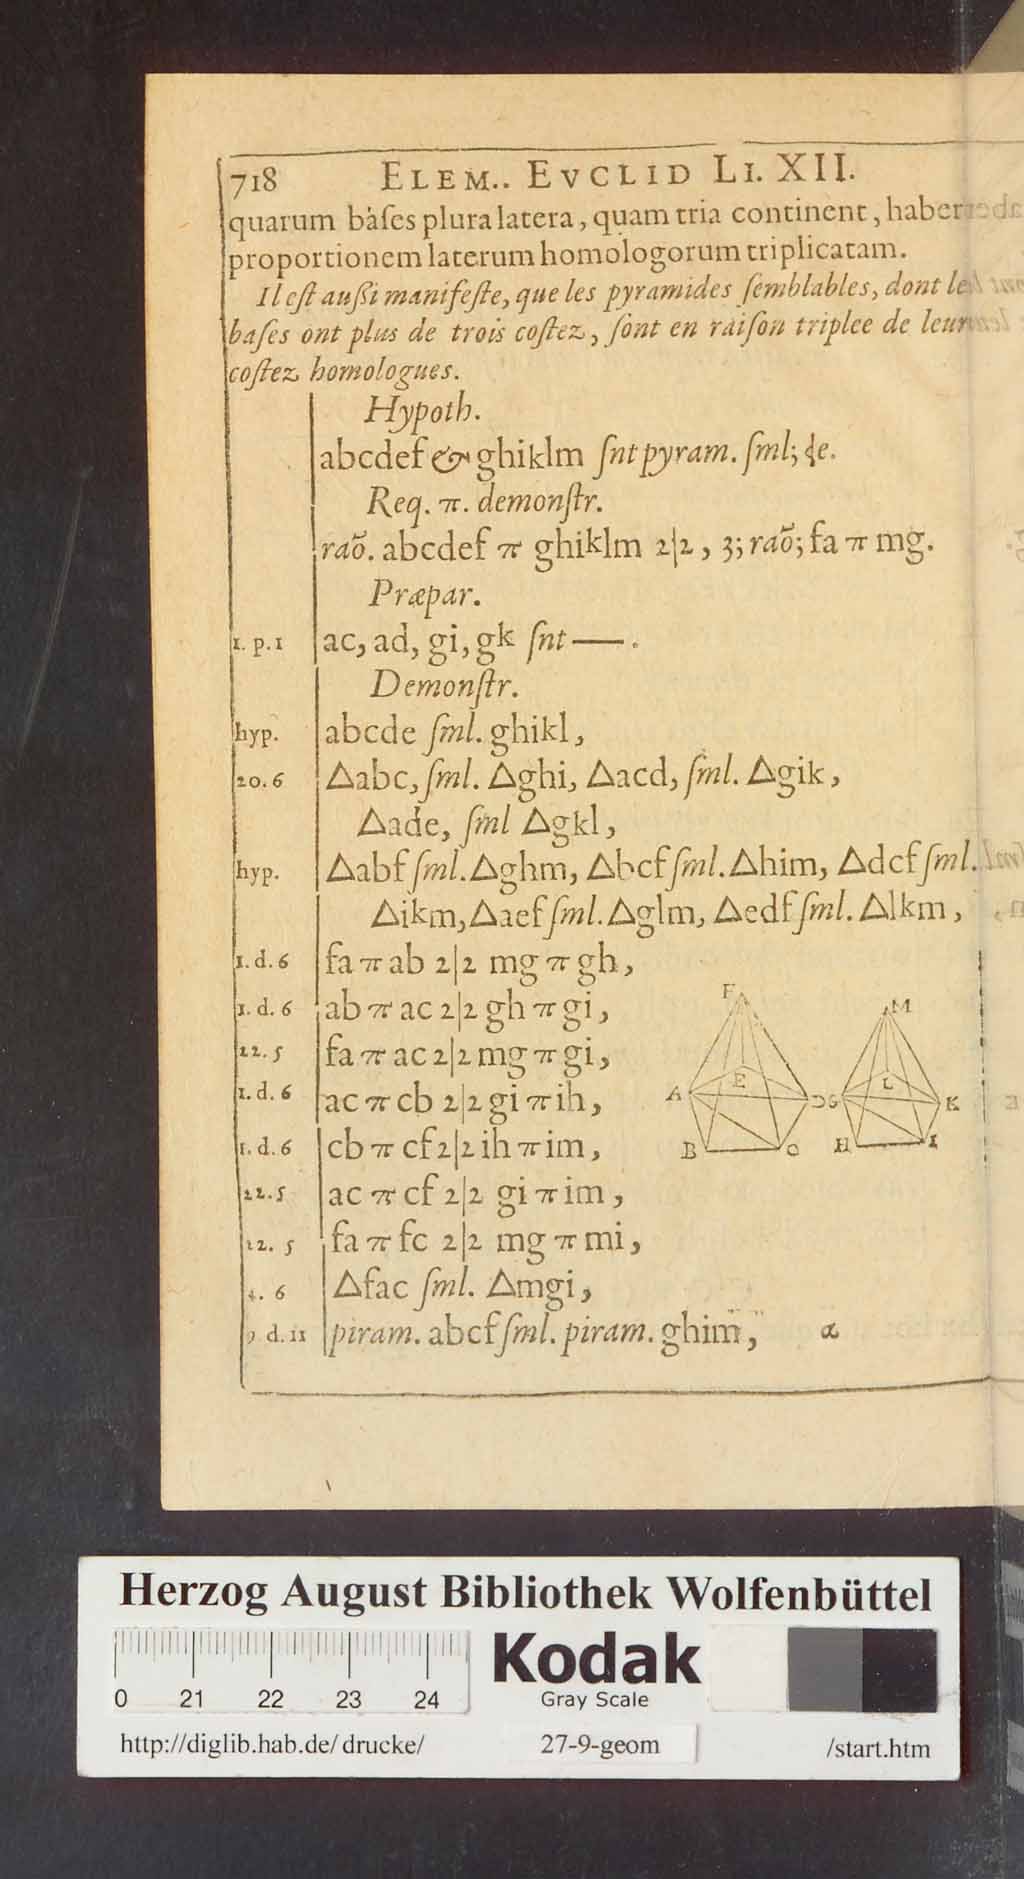 718 ELEM.. EVCLID LI. XII.
quarum báſes plura latera, quam tria continent, haber
proportionem laterum homologorum triplicatam.
Il eſt außi manifeſte, que les pyramides ſemblables, dont le
baſes ont plus de trois coſtez, ſont en raiſon triplee de leur
coſtez homologues.
Hypoth.
abcdef & ghiklm ſnt pyram. ſml;
Req. π. demonſtr.
raõ. abcdef π ghiklm 2|2, 3; raõ; fa π mg.
Præpar.
1. p. 1 ac, ad, gi, gk ſnt —.
Demonſtr.
hyp. abcde ſml. ghikl,
20. 6 △abc, ſml. △ghi, △acd, ſml. △gik,
△ade, ſml △gkl,
hyp. △abf ſml. △ghm, △bcf ſml. △him, △dcf ſml.
△ikm, △aef ſml. △glm, △edf ſml. △lkm,
1. d. 6 fa π ab 2|2 mg π gh,
1. d. 6 ab π ac 2|2 gh π gi,
22. 5 fa π ac 2|2 mg π gi,
1. d. 6 ac π cb 2|2 gi π ih,
1. d. 6 cb π cf 2|2 ih π im,
22. 5 ac π cf 2|2 gi π im,
22. 5 fa π fc 2|2 mg π mi,
4. 6 △fac ſml. △mgi,
9 d. 11 piram. abcf ſml. piram. ghim, α
F M
E L
A D G K
B C H I
Herzog August Bibliothek Wolfenbüttel
Kodak
Gray Scale
0 21 22 23 24
http://diglib.hab.de/drucke/ 27-9-geom /start.htm